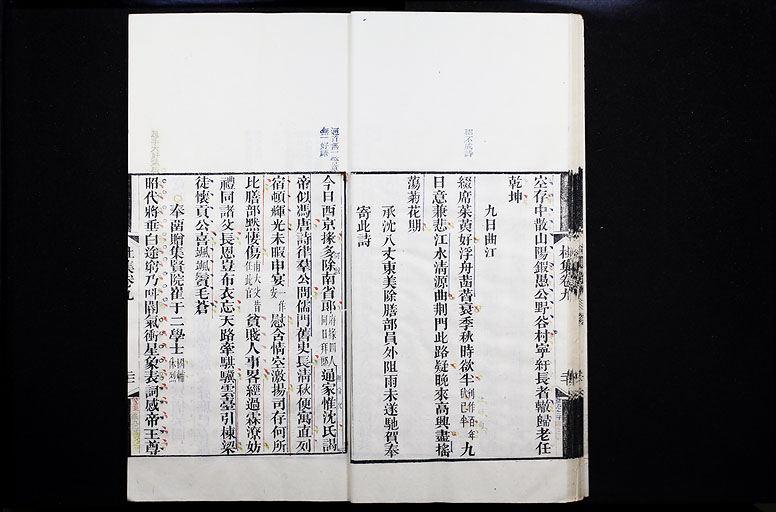 空存中散山陽鍛愚公野谷村寧紆長者轍歸老任
乾坤
九日曲江
綴席茱萸好浮舟菡萏衰季秋時欲半九
日意兼悲江水清源曲荆門此路疑晚來高興盡搖
蕩菊花期
承沈八丈東美除膳部員外阻雨未遂馳賀奉
寄此詩
今日西京掾多除南省郎通家惟沈氏謁
帝似馮唐詩律羣公問儒門舊史長清秋便寓直列
宿頓輝光未暇申宴慰含情空激揚司存何所
比膳部默悽傷貧賤人事畧經過霖潦妨
禮同諸父長恩豈布衣忘天路牽騏驥雲臺引棟梁
徒懷貢公喜颯颯鬢毛蒼
奉畱贈集賢院崔于二學士
昭代將垂白途窮乃叫閽氣衝星象表詞感帝王尊
杜集卷九